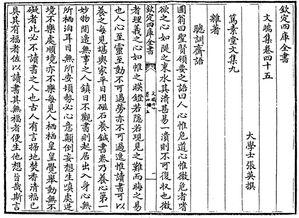 欽定四庫全書
文端集卷四十五
大學士張英撰
篤素堂文集九
雜著
聰訓齋語
圃翁曰聖賢領要之語曰人心惟危道心惟微危者嗜
欲之心如隄之束水其潰甚易一潰則不可復收也微
欽定四庫全書
者理義之心如帷之映鐙若隱若現見之難而晦之易
也人心至靈至動不可過勞亦不可過逸惟讀書可以
養之每見堪輿家平日用磁石養鍼書卷乃養心第一
妙物閒適無事之人鎮日不觀書則起居出入身心無
所棲泊耳目無所安頓勢必心意顛倒妄想生嗔處逆
境不樂處順境亦不樂每見人栖栖皇皇覺舉動無不
礙者此必不讀書之人也古人有言掃地焚香清福已
具其有福者佐以讀書其無福者便生他想旨哉斯言